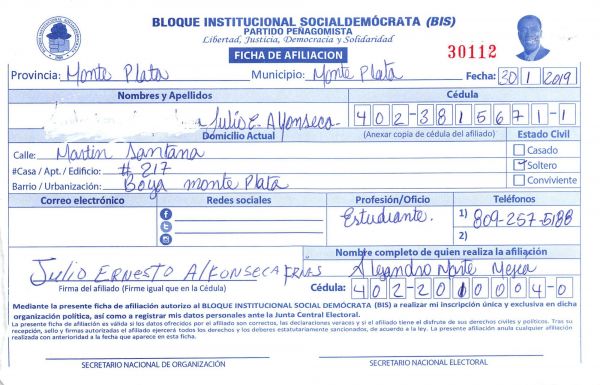 BLOQUE INSTITUCIONAL SOCIALDEMÓCRATA (BIS)
PARTIDO PEÑAGOMISTA
Libertad, Justicia, Democracia y Solidaridad
FICHA DE AFILIACION
30112
Provincia: Monte Plata Municipio: Monte Plata Fecha: 30 1 2019
Nombres y Apellidos Cédula
Julio E. Alfonseca 402-3815671-1
Domicilio Actual (Anexar copia de cédula del afiliado) Estado Civil
Calle: Martin Santana Casado
#Casa / Apt. / Edificio: # 217 Soltero
Barrio / Urbanización: Boya monte Plata Conviviente
Correo electrónico Redes sociales Profesión/Oficio Teléfonos
Estudiante. 1) 809-257-5188
2)
Nombre completo de quien realiza la afiliación
JULIO ERNESTO AlFONSECA FRIAS Alejandro Monte Mejia
Firma del afiliado (Firme igual que en la Cédula) Cédula: 402-2010004-0
Mediante la presente ficha de afiliación autorizo al BLOQUE INSTITUCIONAL SOCIAL DEMÓCRATA (BIS) a realizar mi inscripción única y exclusiva en dicha
organización política, así como a registrar mis datos personales ante la Junta Central Electoral.
La presente ficha de afiliación es válida si los datos ofrecidos por el afiliado son correctos, las declaraciones veraces y si el afiliado tiene el disfrute de sus derechos civiles y políticos. Tras su
recepción, sello y firmas autorizadas el afiliado ejercerá todos los derechos y los deberes estatutariamente sancionados, de acuerdo a la ley. La presente afiliación anula cualquier afiliación
realizada con anterioridad a la fecha que aparece en esta ficha.
SECRETARIO NACIONAL DE ORGANIZACIÓN SECRETARIO NACIONAL ELECTORAL